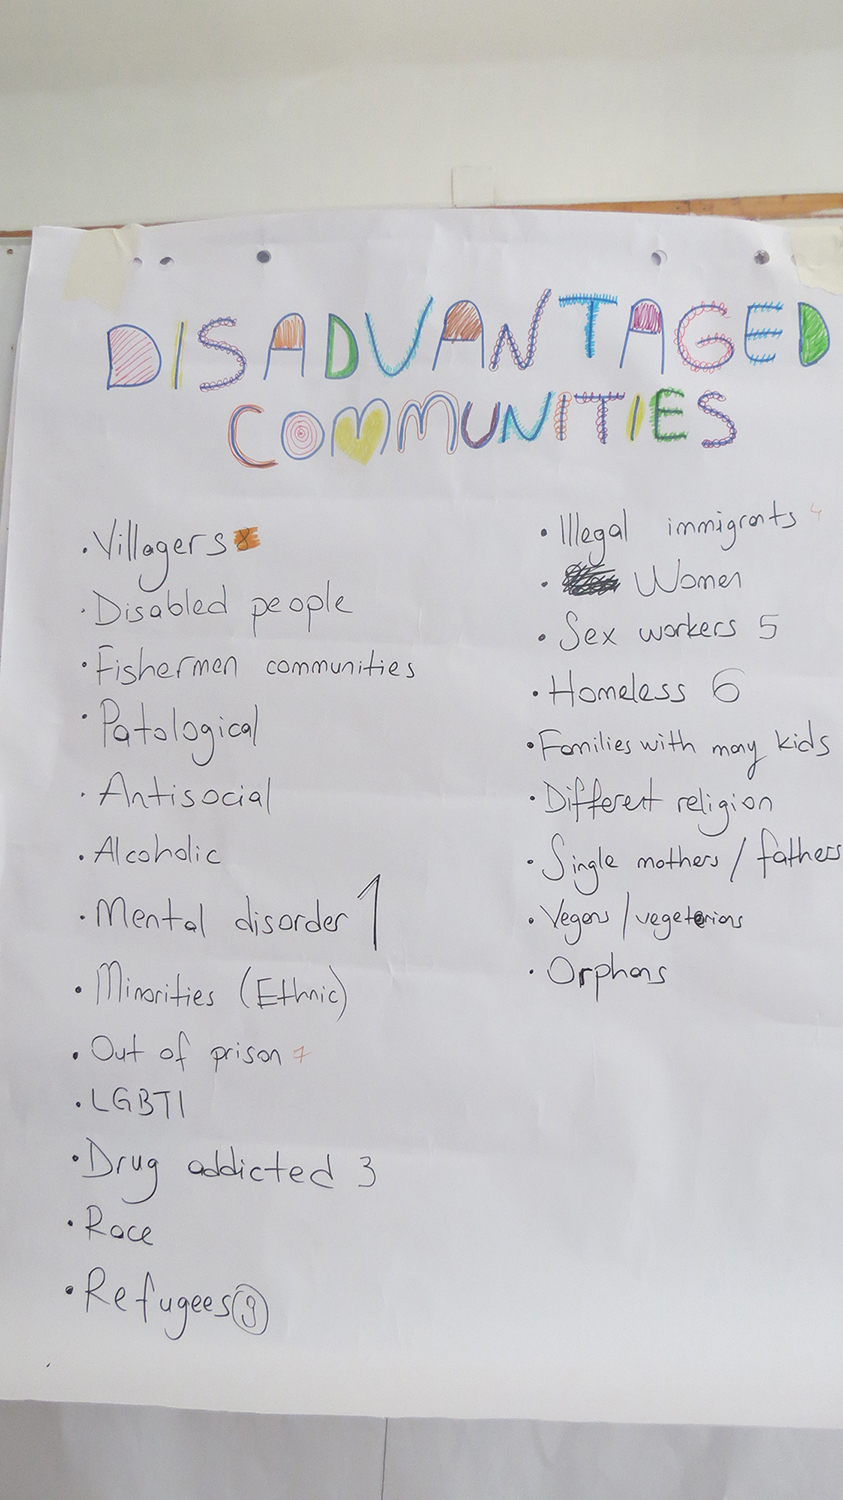 DISADVANTAGED
COMMUNITIES
• Villagers 8
• Disabled people
• Fishermen communities
• Patological
• Antisocial
• Alcoholic
• Mental disorder 1
• Minorities (Ethnic)
• Out of prison 7
• LGBTI
• Drug addicted 3
• Race
• Refugees 9
• Illegal immigrants 4
• Women
• Sex workers 5
• Homeless 6
• Families with many kids
• Different religion
• Single mothers / fathers
• Vegans / vegeterians
• Orphans